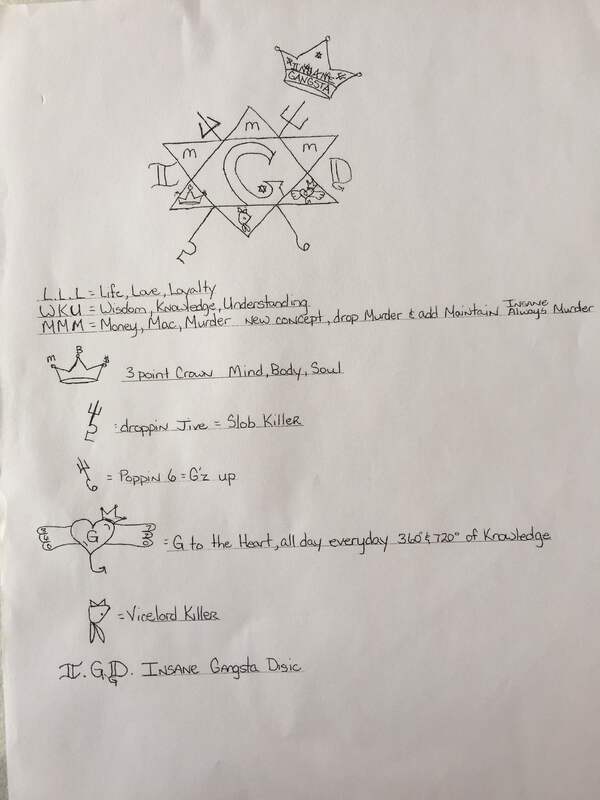 INSANE
GANGSTA
M
M
M
I
G
D
L.L.L = Life, Love, Loyalty
WKU = Wisdom, Knowledge, Understanding
MMM = Money, Mac, Murder New concept, drop Murder & add Maintain Insane Always Murder
M B $
3 point Crown Mind, Body, Soul
= droppin Jive = Slob Killer
= Poppin 6 = G'z up
G
360
720
= G to the Heart, all day everyday 360° & 720° of Knowledge
= Vicelord Killer
I.G.D. Insane Gangsta Disic